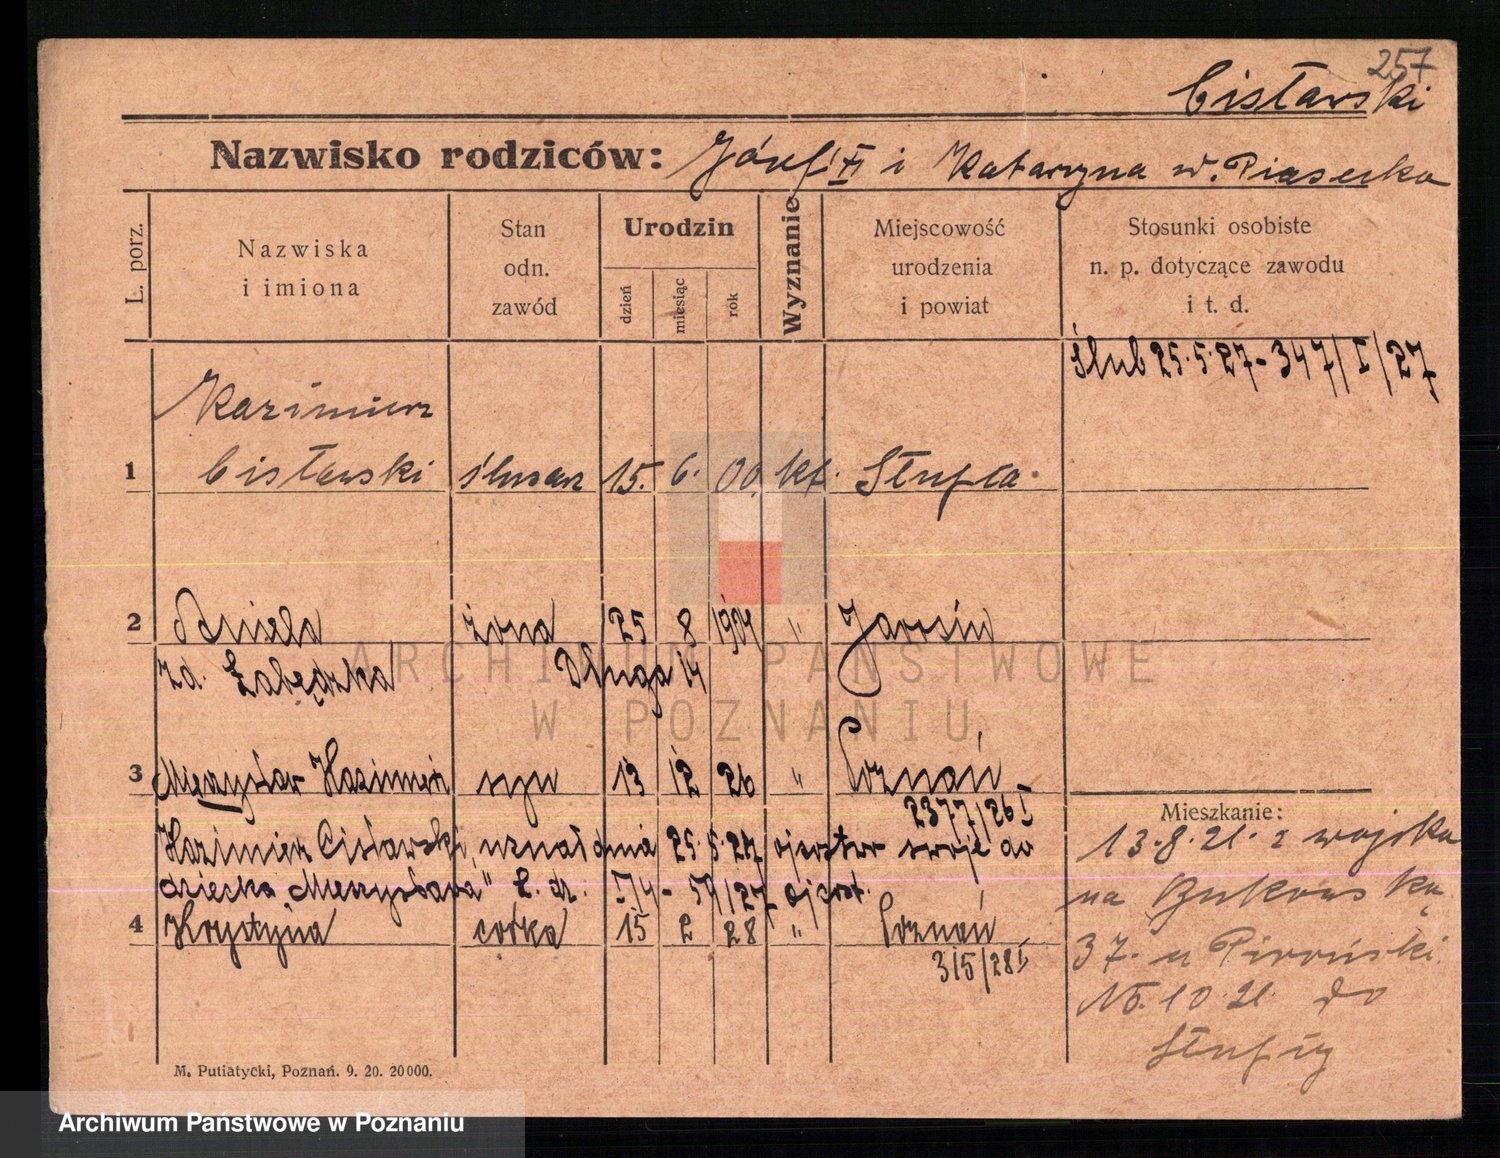 257
Cisławski
Nazwisko rodziców: Józef i Katarzyna w. Piasecka
L. porz.
Nazwiska
i imiona
Stan
odn.
zawód
Urodzin
dzień
miesiąc
rok
Wyznanie
Miejscowość
urodzenia
i powiat
Stosunki osobiste
n. p. dotyczące zawodu
i t. d.
Ślub 25.5.27-347/I/27
Kazimierz
1 Cisławski ślusarz 15. 6. 00. kt. Słupca
2 Aniela żona 25 8 1904 " Jarosin
zd. Łabędzka Długa 14
3 Mieczysław Kazimierz syn 13 12 26 " Poznań
2377/26 I
Kazimierz Cisławski, uznał dnia 25.5.27 ojcostwo swoje do
dziecka „Mieczysława" L. dz. I/4-54/27 ojcost.
4 Krystyna córka 15 2 28 " Poznań
315/28 I
Mieszkanie:
13.8.21. z wojska
na Bukowską
37. u
10.21. do
Słupcy
M. Putiatycki, Poznań. 9. 20. 20000.
ARCHIWUM PAŃSTWOWE
W POZNANIU
Archiwum Państwowe w Poznaniu